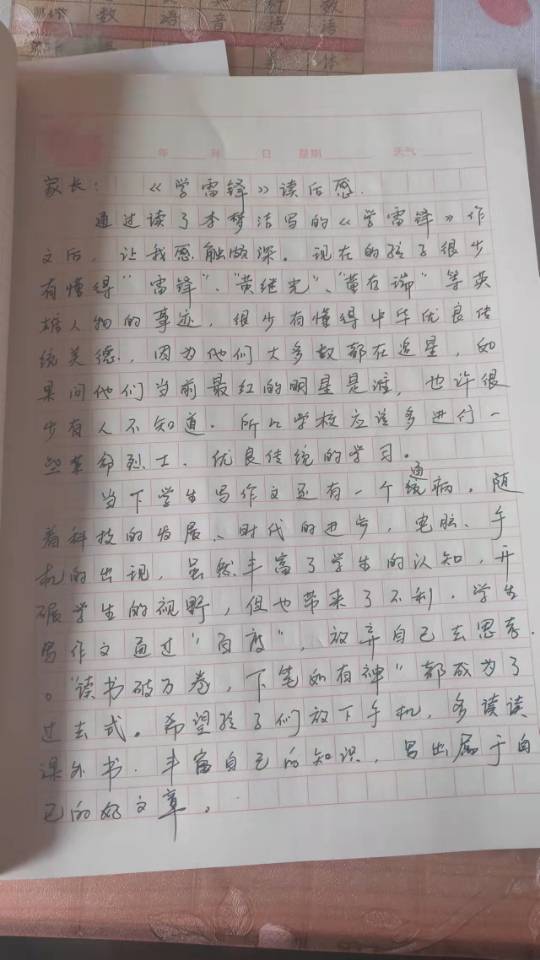 数
语
音
语
年 月 日 星期 天气
家长: 《学雷锋》读后感.
通过读了李梦洁写的《学雷锋》作
文后, 让我感触颇深。现在的孩子很少
有懂得"雷锋"、"黄继光"、"董存瑞"等英
雄人物的事迹, 很少有懂得中华优良传
统美德, 因为他们大多数都在追星, 如
果问他们当前最红的明星是谁, 也许很
少有人不知道. 所以学校应该多进行一
些革命烈士、优良传统的学习。
当下学生写作文还有一个通病, 随
着科技的发展、时代的进步, 电脑、手
机的出现, 虽然丰富了学生的认知, 开
碾学生的视野, 但也带来了不利. 学生
写作文通过"百度", 放弃自己去思考.
。"读书破万卷, 下笔如有神"都成为了
过去式。希望孩子们放下手机, 多读读
课外书. 丰富自己的知识, 写出属于自
己的好文章.